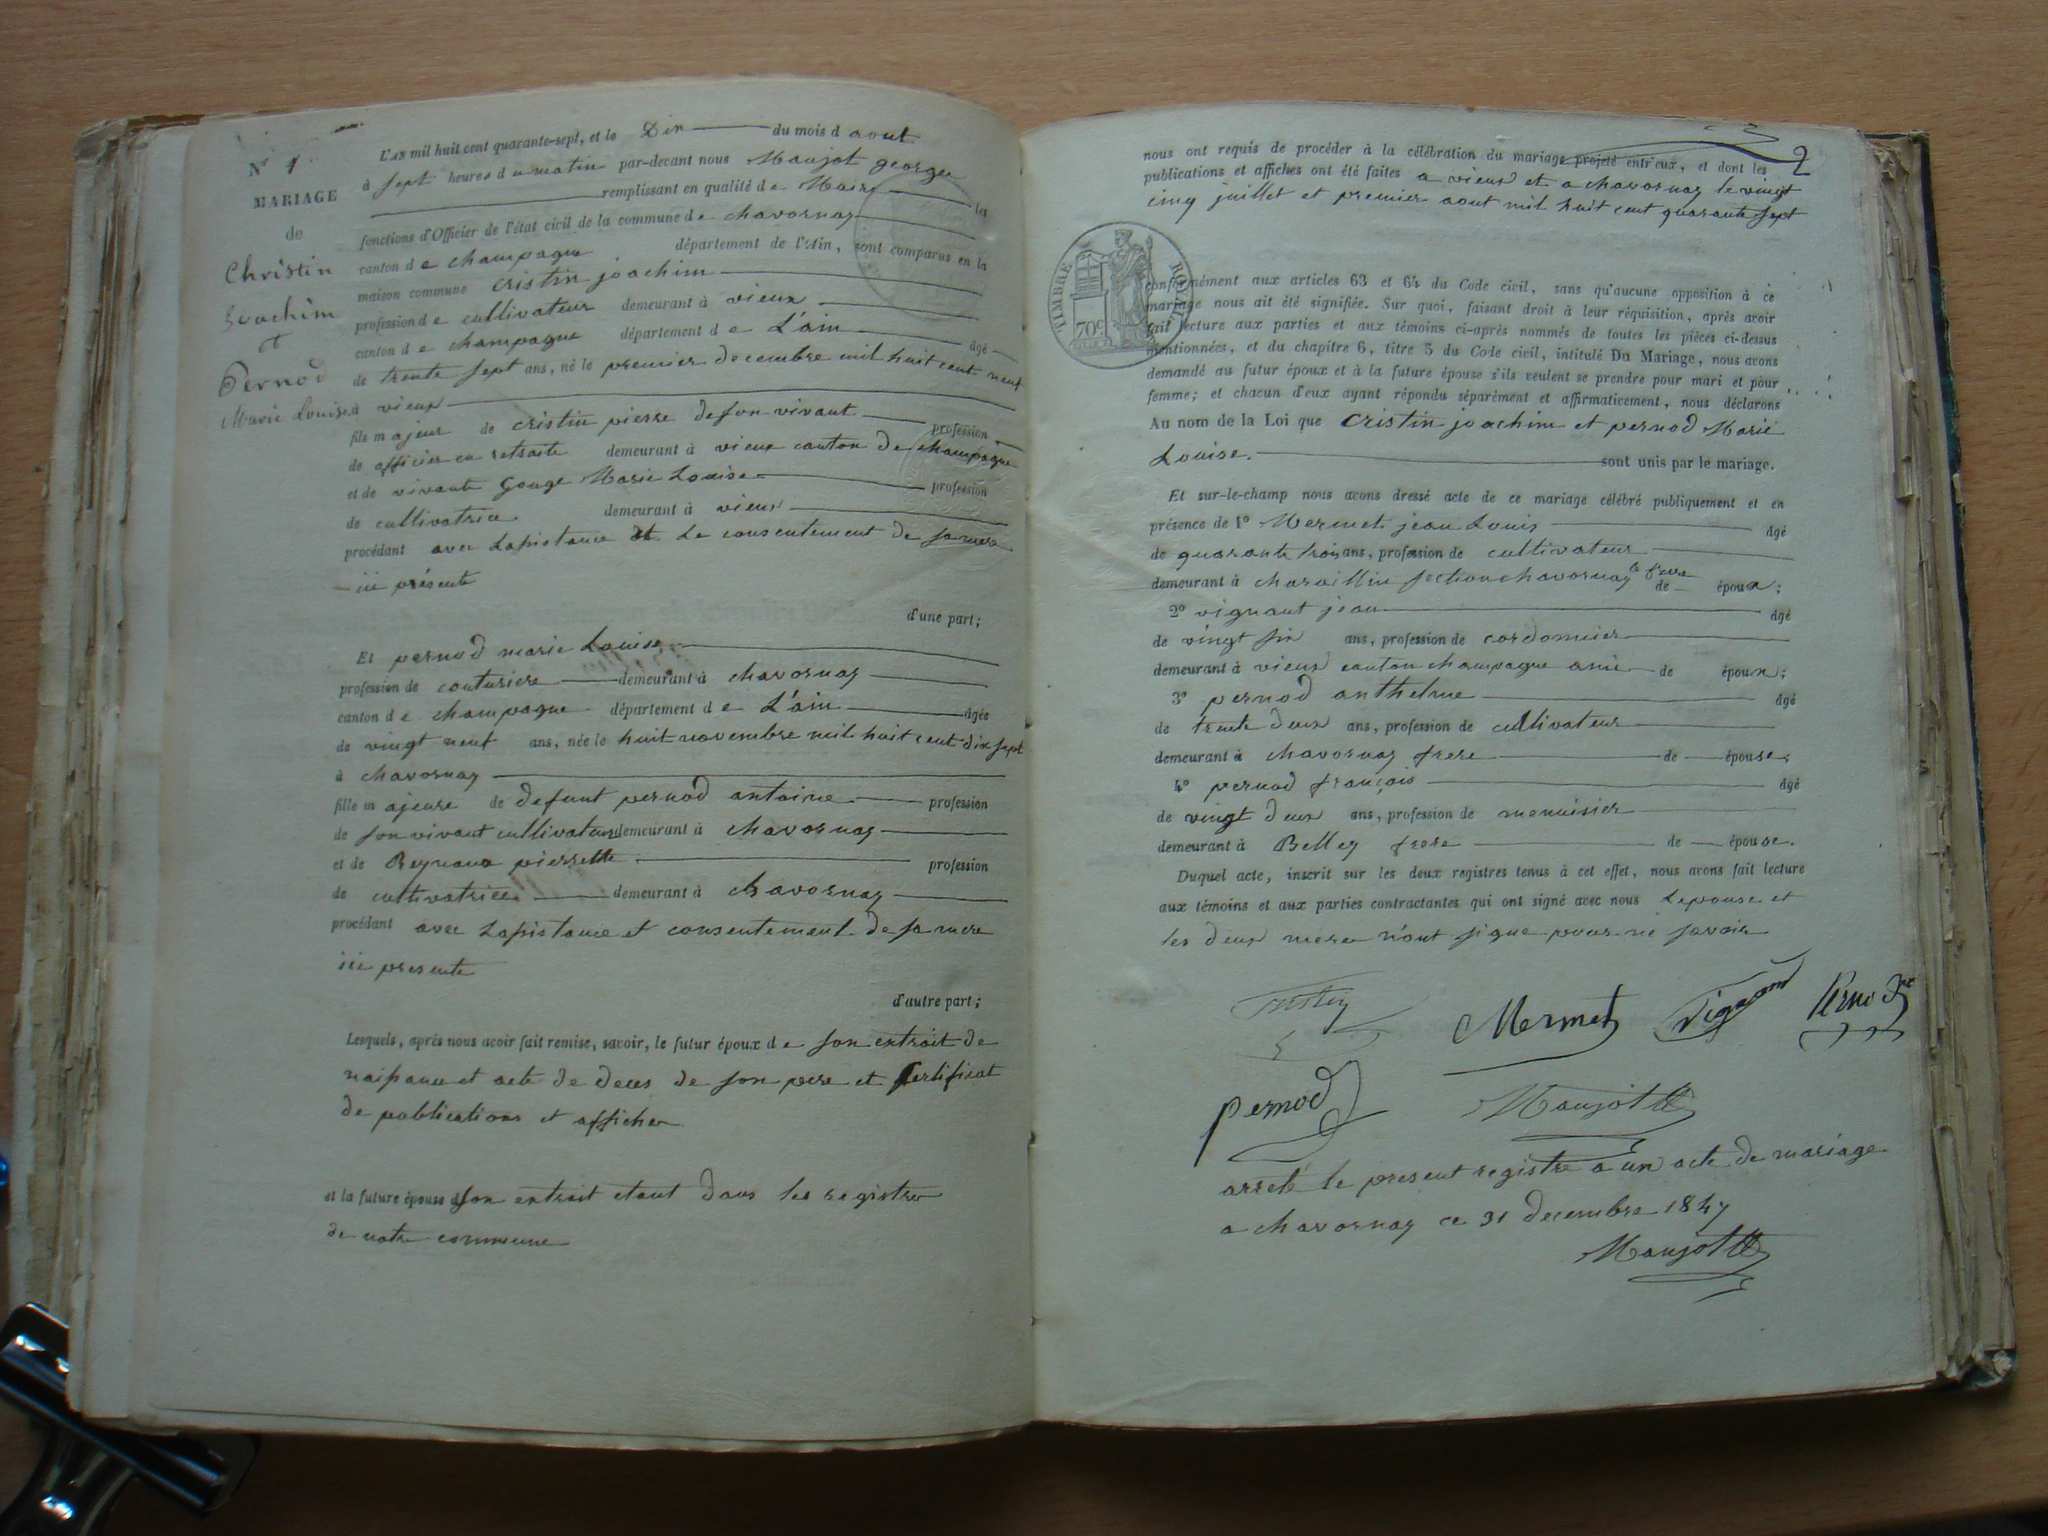 N° 1
MARIAGE
de
Christin
Joachim
et
Pernod
Marie Louise
L'AN mil huit cent quarante-sept, et le Dix du mois d aout
à sept heures du matin par-devant nous Maujot george
remplissant en qualité de Maire les
fonctions d'Officier de l'état civil de la commune de chavornay
canton de champagne département de l'Ain, sont comparus en la
maison commune cristin joachim
profession de cultivateur demeurant à vieux
canton de champagne département de L'ain âgé
de trente sept ans, né le premier decembre mil huit cent neuf
à vieux
fils majeur de cristin pierre de son vivant profession
de officier en retraite demeurant à vieux canton de champagne
et de vivante Gouge Marie Louise profession
de cultivatrice demeurant à vieux
procédant avec Lasistance et Le consentement de sa mere
ici présente
d'une part;
Et pernod marie Louise
profession de couturiere demeurant à chavornay
canton de champagne département de L'ain âgée
de vingt neuf ans, née le huit novembre mil huit cent dix sept
à chavornay
fille majeure de defunt pernod antoine profession
de son vivant cultivateur demeurant à chavornay
et de Reynaud pierrette profession
de cultivatrice demeurant à chavornay
procédant avec Lasistance et consentement de sa mere
ici presente
d'autre part;
Lesquels, après nous avoir fait remise, savoir, le futur époux de son extrait de
naissance et acte de deces de son pere et certificat
de publications et affiches
et la future épouse d son extrait etant dans les registres
de notre commune
2
nous ont requis de procéder à la célébration du mariage projeté entr'eux, et dont les
publications et affiches ont été faites a vieux et a chavornay le vingt
cinq juillet et premier aout mil huit cent quarante sept
TIMBRE ROYAL
70c
conformément aux articles 63 et 64 du Code civil, sans qu'aucune opposition à ce
mariage nous ait été signifiée. Sur quoi, faisant droit à leur réquisition, après avoir
fait lecture aux parties et aux témoins ci-après nommés de toutes les pièces ci-dessus
mentionnées, et du chapitre 6, titre 5 du Code civil, intitulé Du Mariage, nous avons
demandé au futur époux et à la future épouse s'ils veulent se prendre pour mari et pour
femme; et chacun d'eux ayant répondu séparément et affirmativement, nous déclarons
Au nom de la Loi que cristin joachim et pernod Marie
Louise. sont unis par le mariage.
Et sur-le-champ nous avons dressé acte de ce mariage célébré publiquement et en
présence de 1° Mermet jean Louis âgé
de quarante trois ans, profession de cultivateur
demeurant à charvillin section chavornay de époux;
2° vignant jean âgé
de vingt six ans, profession de cordonnier
demeurant à vieux canton champagne ami de époux;
3° pernod anthelme âgé
de trente deux ans, profession de cultivateur
demeurant à chavornay frere de épouse;
4° pernod françois âgé
de vingt deux ans, profession de menuisier
demeurant à Belley frere de épouse.
Duquel acte, inscrit sur les deux registres tenus à cet effet, nous avons fait lecture
aux témoins et aux parties contractantes qui ont signé avec nous Lepouse et
les deux meres n'ont signe pour ne savoir
Cristin Mermet Pernod
pernod Maujot
arreté le present registre a un acte de mariage
a chavornay ce 31 decembre 1847
Maujot